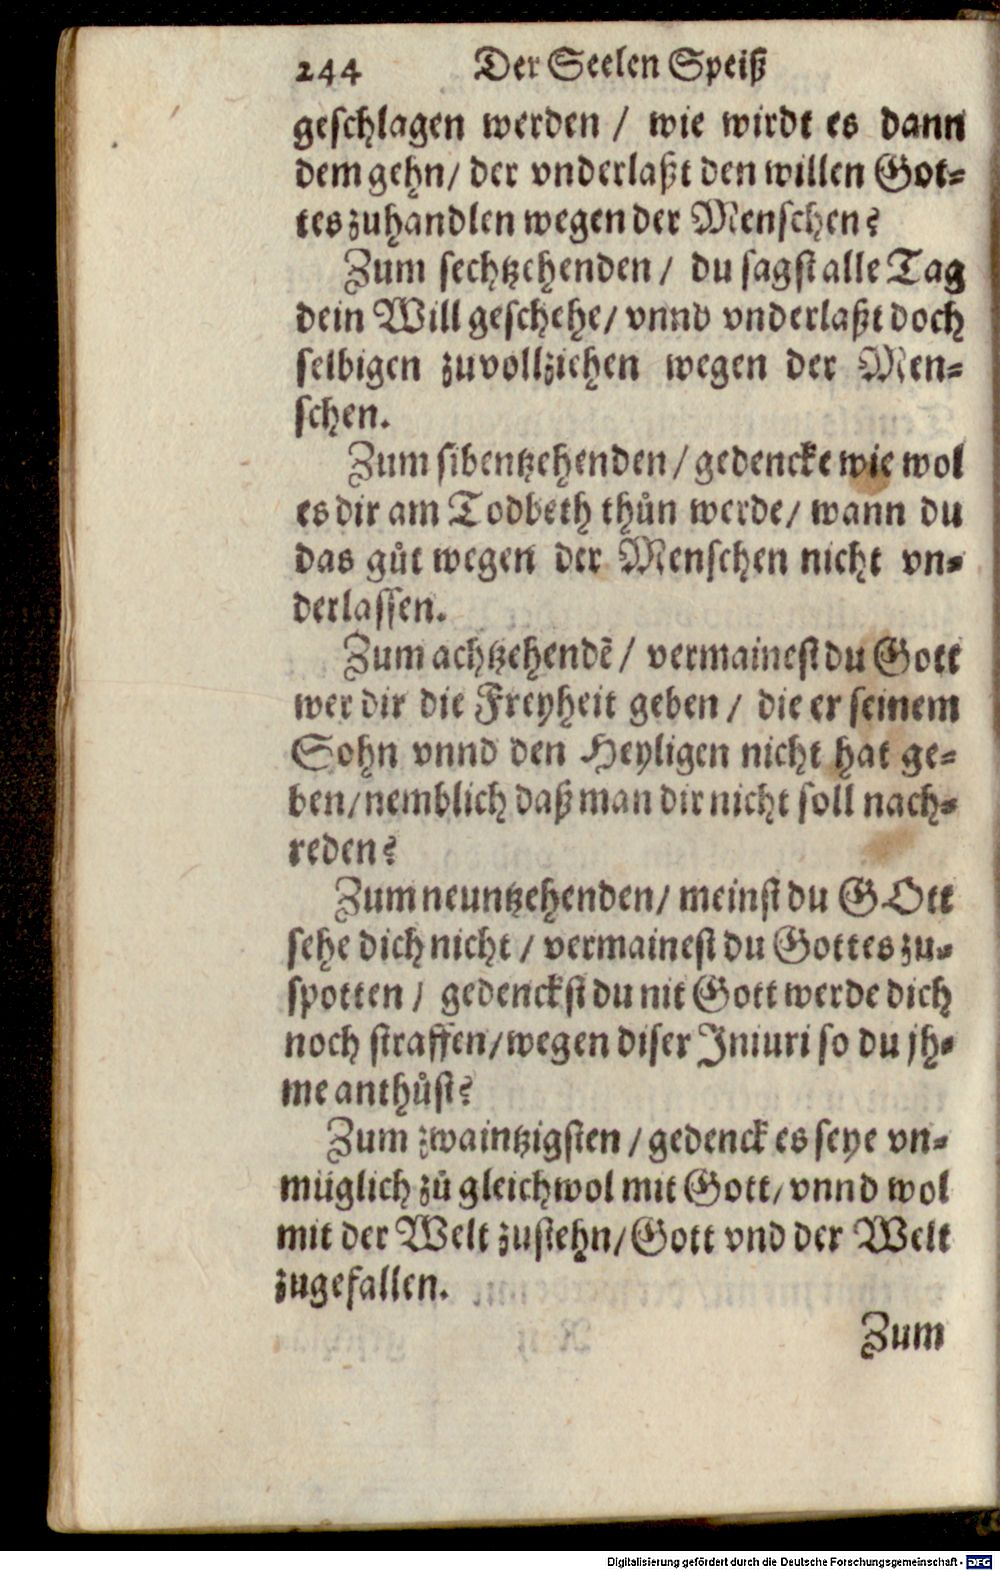 244 Der Seelen Speiß
geschlagen werden / wie wirdt es dann
dem gehn / der vnderlaßt den willen Got-
tes zuhandlen wegen der Menschen?
Zum sechtzehenden / du sagst alle Tag
dein Will geschehe / vnnd vnderlaßt doch
selbigen zuvollziehen wegen der Men-
schen.
Zum sibentzehenden / gedencke wie wol
es dir am Todbeth thůn werde / wann du
das gůt wegen der Menschen nicht vn-
derlassen.
Zum achtzehendẽ / vermainest du Gott
wer dir die Freyheit geben / die er seinem
Sohn vnnd den Heyligen nicht hat ge-
ben / nemblich daß man dir nicht soll nach-
reden?
Zum neuntzehenden / meinst du GOtt
sehe dich nicht / vermainest du Gottes zu-
spotten / gedenckst du nit Gott werde dich
noch straffen / wegen diser Iniuri so du jh-
me anthůst?
Zum zwaintzigsten / gedenck es seye vn-
müglich zů gleich wol mit Gott / vnnd wol
mit der Welt zustehn / Gott vnd der Welt
zugefallen.
Zum
Digitalisierung gefördert durch die Deutsche Forschungsgemeinschaft - DFG